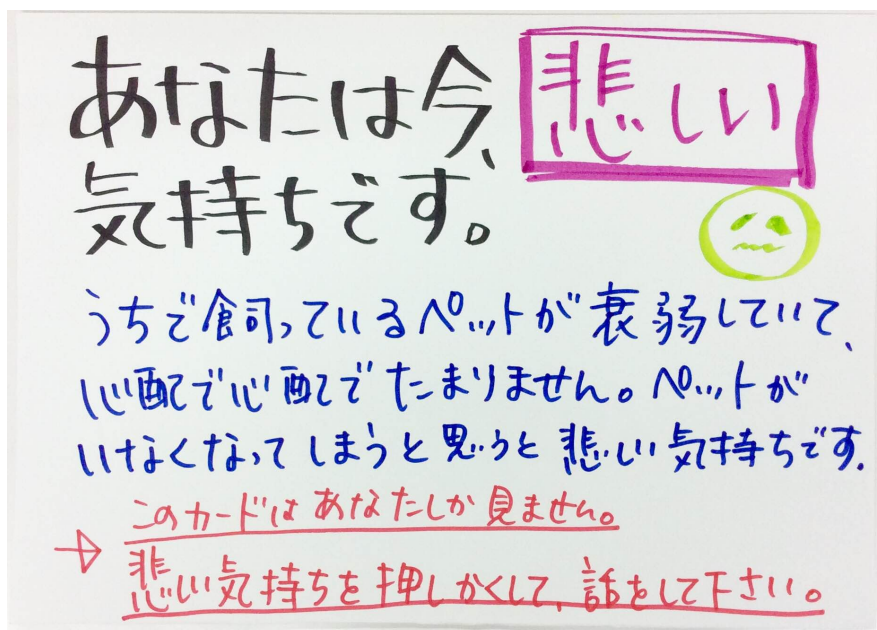 あなたは今、悲しい
気持ちです。
うちで飼っているペットが衰弱していて、
心配で心配でたまりません。ペットが
いなくなってしまうと思うと悲しい気持ちです。
このカードはあなたしか見ません。
→悲しい気持ちを押しかくして、話をして下さい。